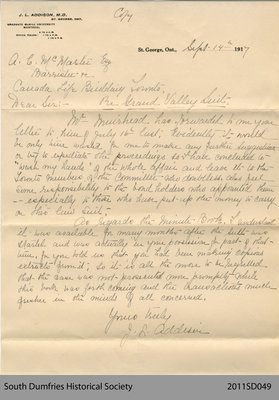 J. L. ADDISON, M.D.
ST. GEORGE, ONT.
GRADUATE McGILL UNIVERSITY
MONTREAL
Copy
St. George, Ont., Sept. 14th 1917
A. C. McMaster Esq
Barrister &c
Canada Life Building Toronto,
Dear Sir:- Re Grand Valley Suit.
Mr Muirhead has forwarded to me your
letter to him of July 10th last. Evidently it would
be only mere words for me to make any further suggestions
or try to expedite the proceedings so I have concluded to
"wash my hands" of the whole affair and leave it to the
Toronto members of the Committee who doubtless feel
some responsibility to the bond holders who appointed them
- especially to those who have put up the money to carry
on this law suit.
As regards the Minute Book, I understand
it was available for many months after the suit was
started and was actually in your possession for part of that
time, for you told us that you had been making copious
extracts from it; So it is all the more to be regretted
that the case was not prosecuted more promptly while
this book was forthcoming and the transactions much
fresher in the minds of all concerned.
Yours truly
J. L. Addison
South Dumfries Historical Society
2011SD049